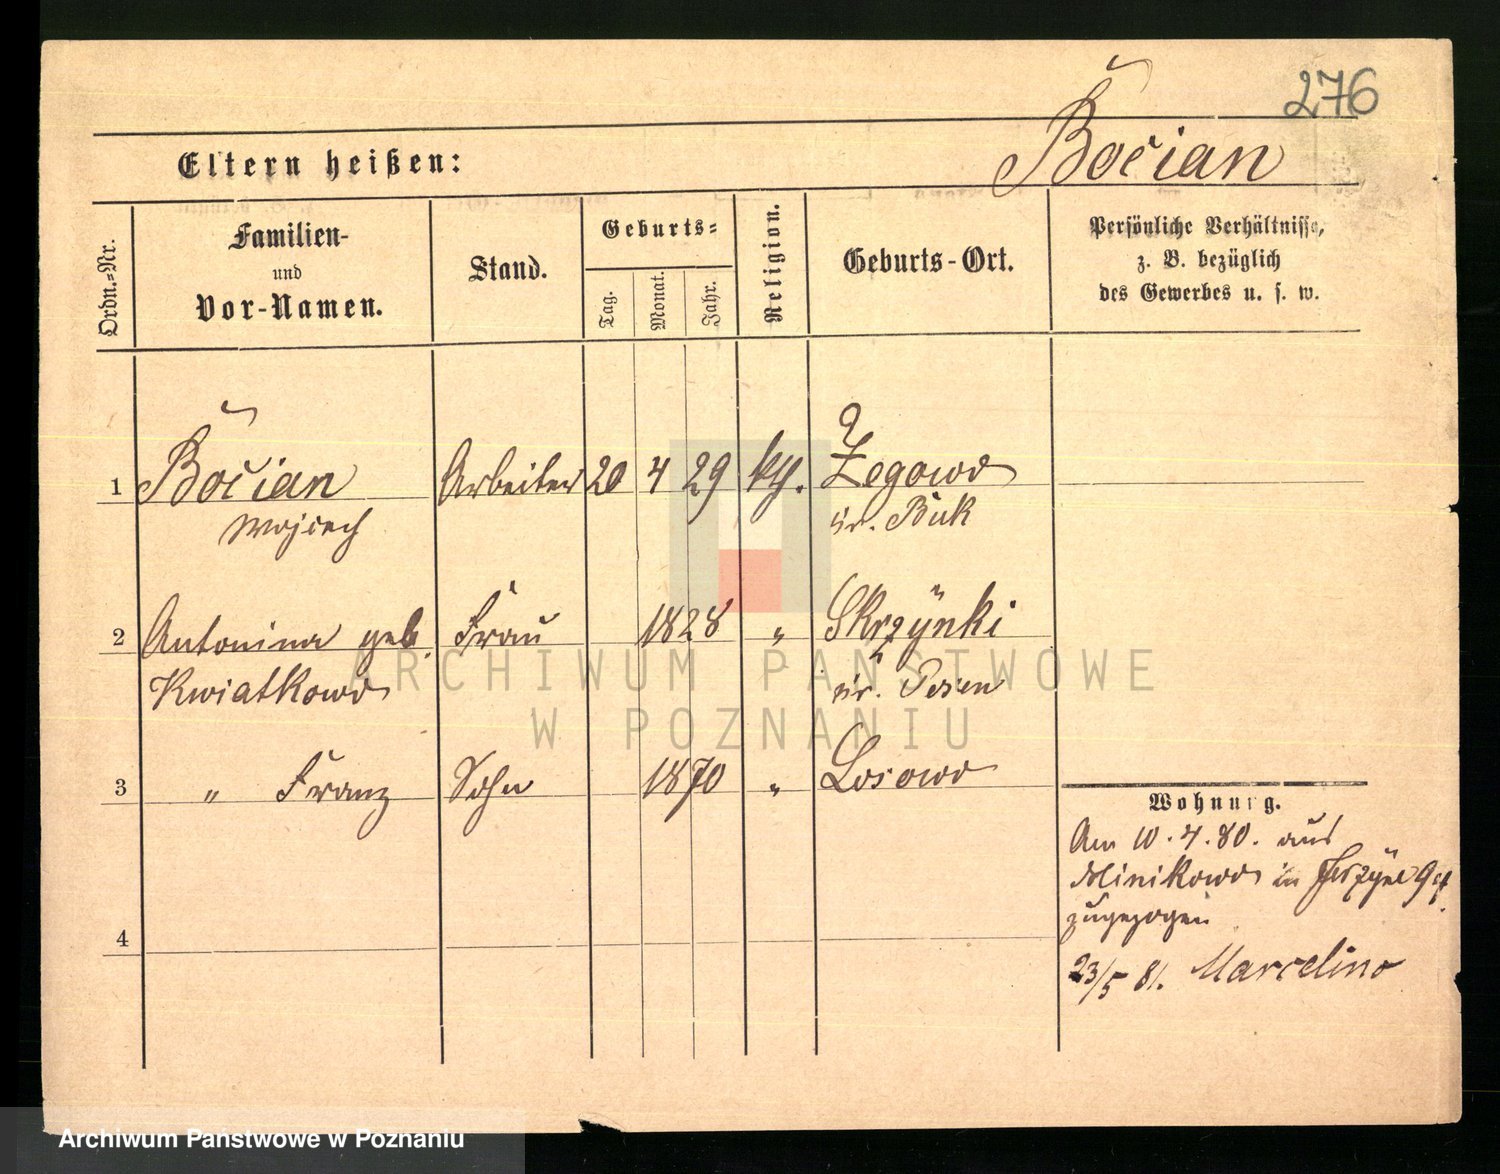 276
Eltern heißen:
Bocian
Ordn.-Nr.
Familien-
und
Vor-Namen.
Stand.
Geburts-
Tag.
Monat.
Jahr.
Religion.
Geburts-Ort.
Persönliche Verhältnisse,
z. B. bezüglich
des Gewerbes u. s. w.
1 Bocian Arbeiter 20 4 29 kth. Zegowo
Wojciech Kr. Buk
2 Antonina geb. Frau 1828 " Skrzynki
Kwiatkowo Kr. Posen
3 " Franz Sohn 1870 " Losowo
4
Wohnung.
Am 10.4.80. aus
Minikowo in
zugezogen
23/5 81. Marcelino
ARCHIWUM PAŃSTWOWE
W POZNANIU
Archiwum Państwowe w Poznaniu